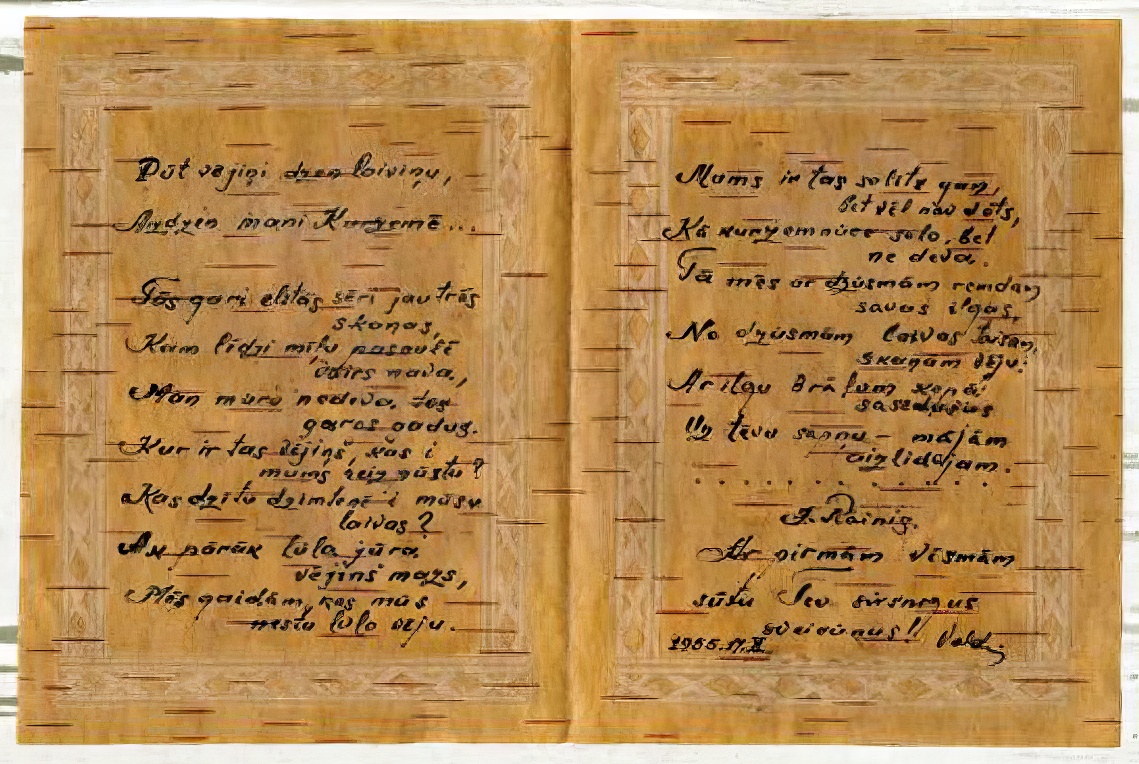 Pūt vējiņi dzen laiviņu,
Aizdzen mani Kurzemē...
Tās gari elstās sēri jautrās
skaņas,
Kam līdzi mīļu pasaulē
nava,
Man
garos
Kur ir tas vējiņš, kas i
mums reiz pūstu?
Kas dzītu dzimtenē i mūsu
laivas?
Ak pārāk liela jūra,
vējiņš mazs,
Mēs gaidām, kas mūs
nestu lielo vēju.
Mums ir tas solīts gan,
bet vēl nav dots,
Kā kurzemniece solo, bet
ne deva.
Tā mēs ar dziesmām remdam
savas ilgas,
No dziesmām laivas taisam,
skaņām vēju.
Ar ilgu kopā
Uz tēvu sapņu – mājām
aizlidojam.
. . . . . . . . . . . . .
J. Rainis.
Ar pirmām vēsmām
sūtu Tev sirsnīgus
sveicienus! Valdis